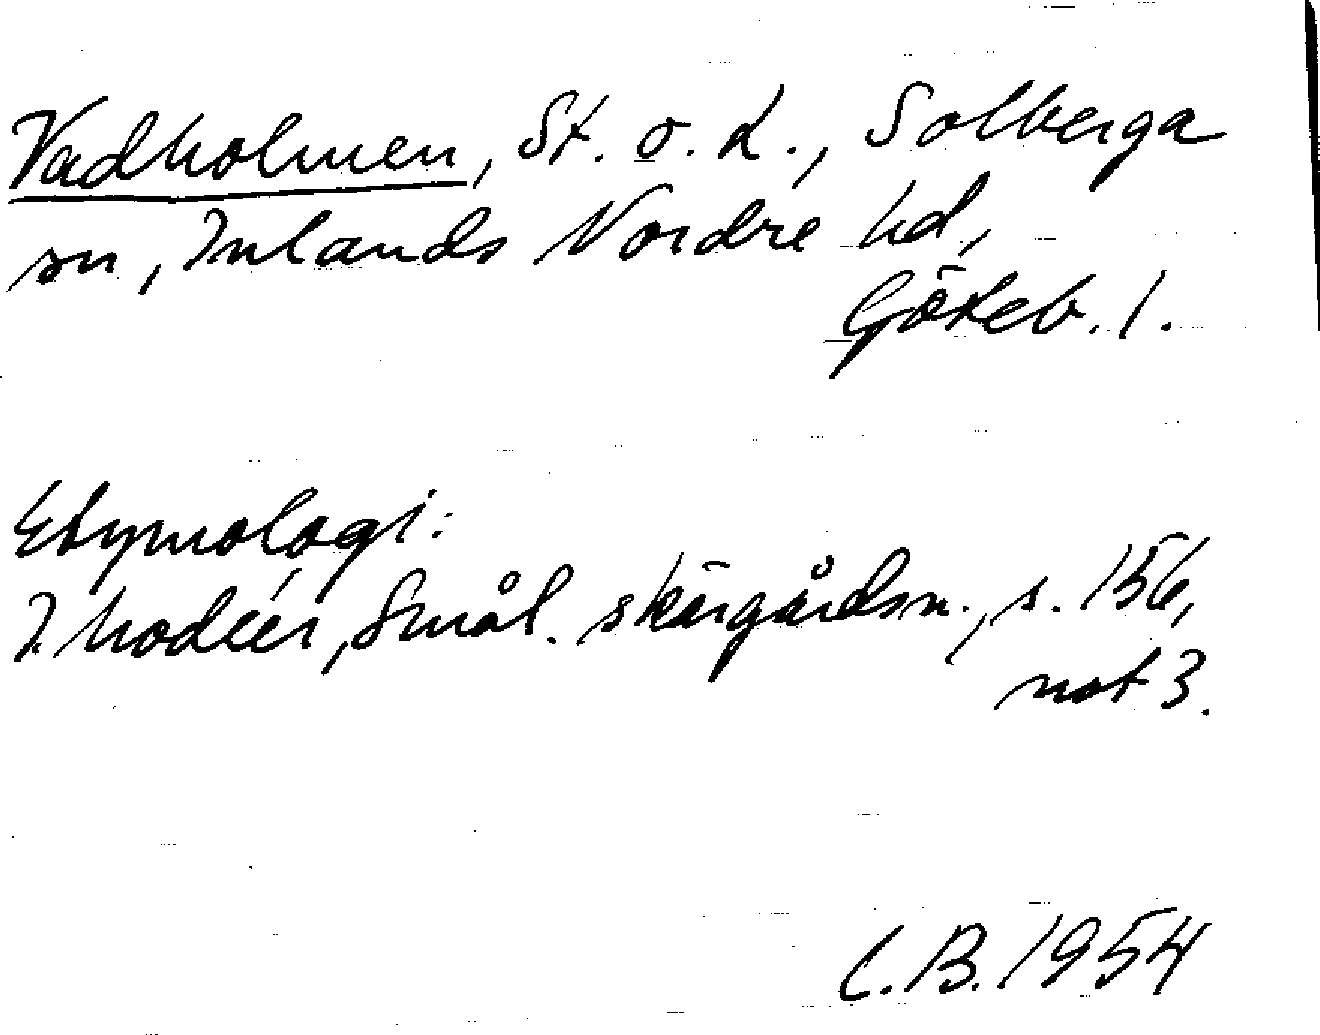 Vadholmen, St. o. L., Solberga
sn, Inlands Nordre hd,
Göteb. l.
Etymologi:
I. Modéer, Smål. skärgårdsn., s. 156,
not 3.
C.B. 1954